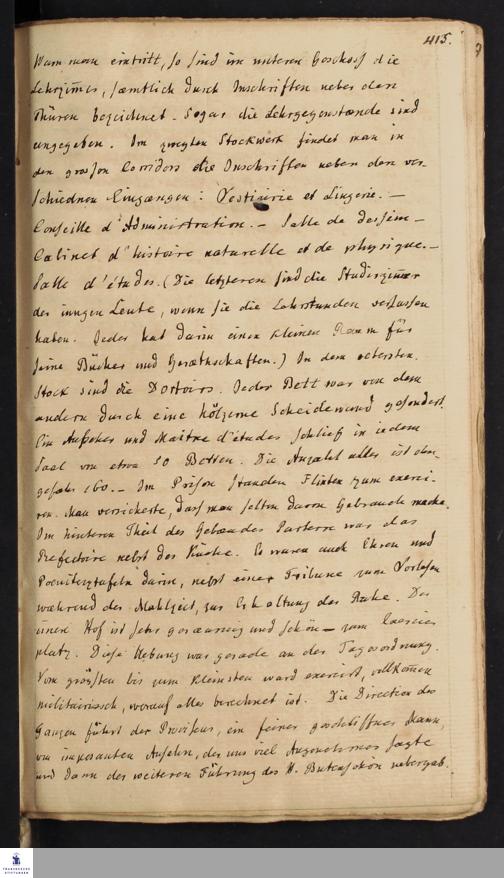 415.
Wenn man eintritt, so sind im unteren Geschoss die
Lehrzim̄er, sæmtlich durch Inschriften neben den
Thüren bezeichnet. Sogar die Lehrgegenstænde sind
angegeben. Im zweyten Stockwerk findet man in
den grossen Corridors die Inschriften neben den ver-
schiednen Eingængen: Vestiairie et Lingerie. —
Conseille d'Administration. — Salle de dessein —
Cabinet d'histoire naturelle et de physique. —
Salle d'études. (Die letzteren sind die Studirzim̄er
der jungen Leute, wenn sie die Lehrstunden verlassen
haben. Jeder hat darin einen kleinen Raum für
seine Bücher und Geræthschaften.) In dem obersten
Stock sind die Dortoirs. Jedes Bett war von dem
andern durch eine hölzerne Scheidewand gesondert.
Ein Aufseher und Maitre d'études schlief in jedem
Saal von etwa 50 Betten. Die Anzahl aller ist ohn-
gefæhr 160. — Im Prison standen Flinten zum exerci-
ren. Man versicherte, dass man selten davon Gebrauch mache.
Im hinteren Theil des Gebæudes Parterre war das
Refectoire nebst der Küche. Es waren auch Ehren und
Poenitenztafeln darin, nebst einer Tribune zum Vorlesen
während der Mahlzeit, zur Erhaltung der Ruhe. Der
innere Hof ist sehr geræumig und schön — zum Exercier
platz. Diese Uebung war gerade an der Tagesordnung.
Vom grössten bis zum kleinsten ward exercirt, vollkom̄en
militairisch, worauf alles berechnet ist. Die Direction des
Ganzen führt der Proviseur, ein feiner geschliffner Mann,
von imposanten Ansehn, der uns viel Angenehmes sagte
und dann der weiteren Führung des H. uebergab.
FRANCKESCHE
STIFTUNGEN